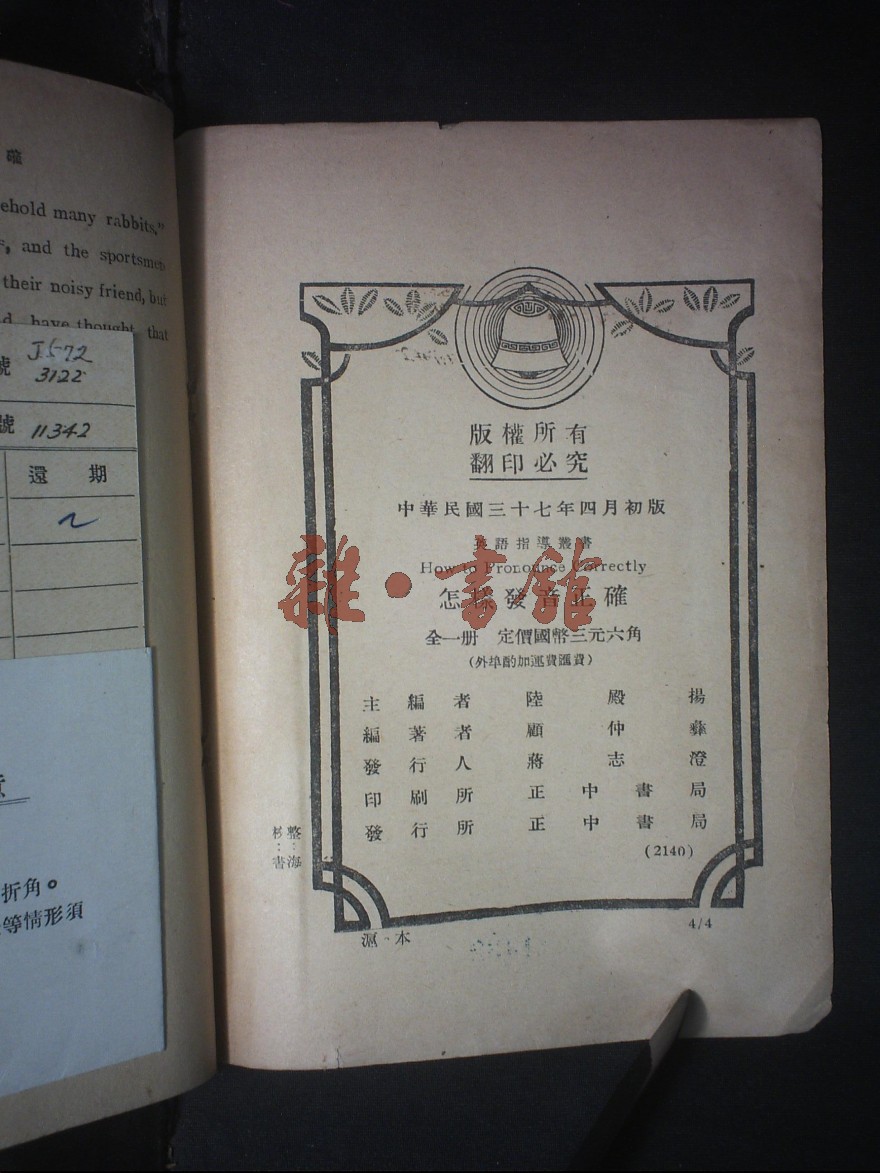 確
ehold many rabbits,"
, and the sportsmen
their noisy friend, but
d have thought that
號 J.572
3122
號 11342
還期
折角。
等情形須
版權所有
翻印必究
中華民國三十七年四月初版
英語指導叢書
How to Pronounce Correctly
怎樣發音正確
全一册 定價國幣三元六角
(外埠酌加運費匯費)
主編者 陸殿揚
編著者 顧仲彝
發行人 蔣志澄
印刷所 正中書局
發行所 正中書局
(2140)
整:海
校:書
滬·本
4/4
雜·書館